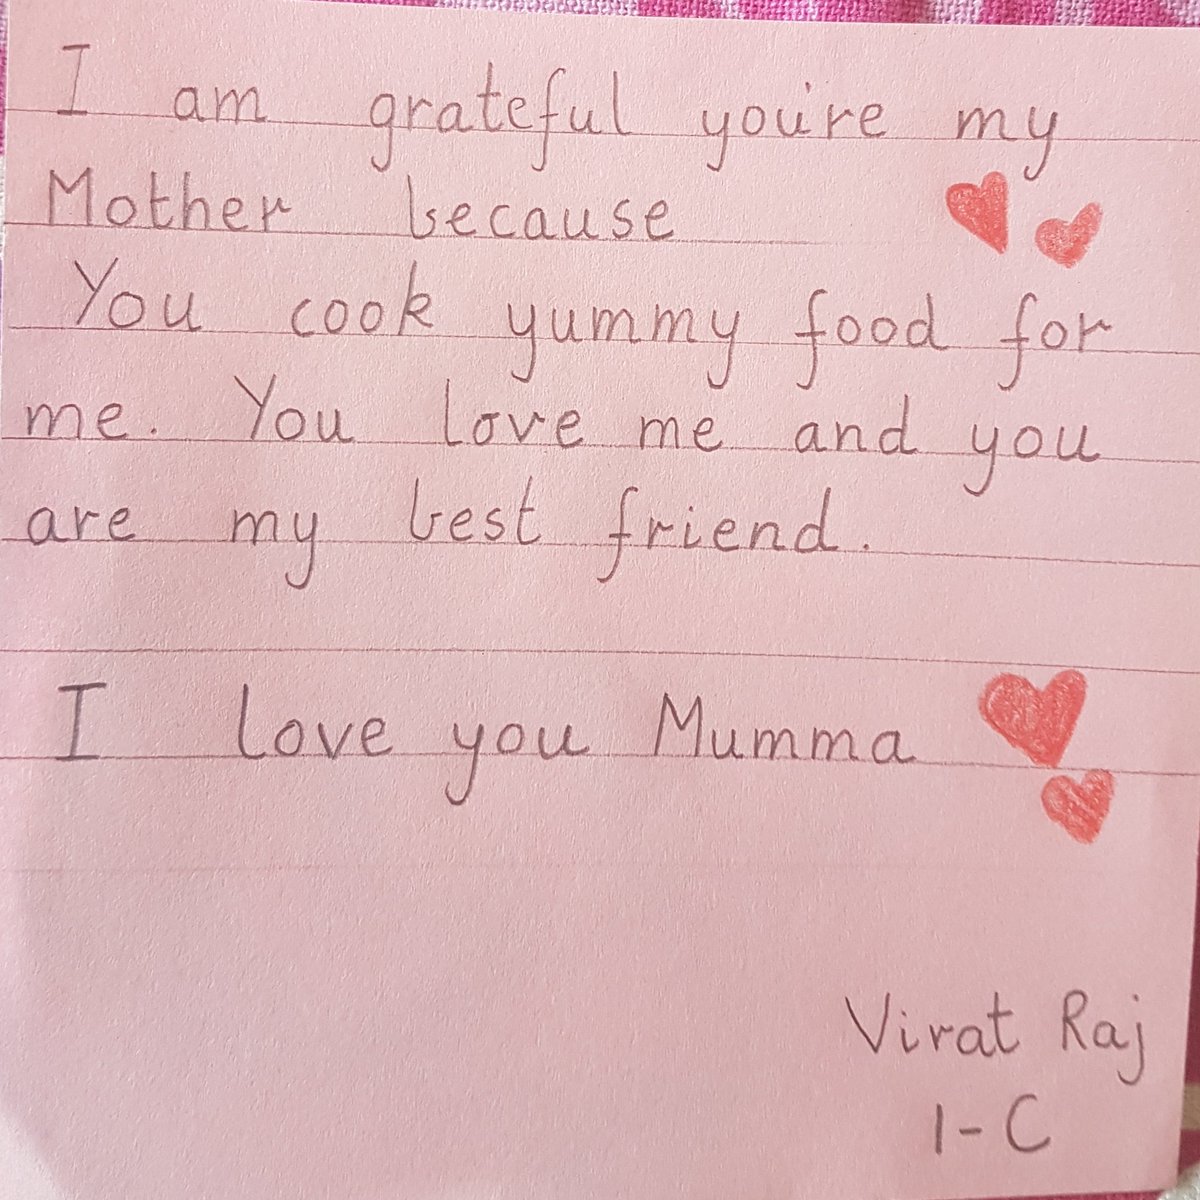 I am grateful you're my
Mother because
You cook yummy food for
me. You love me and you
are my best friend.
I love you Mumma
Virat Raj
1-C